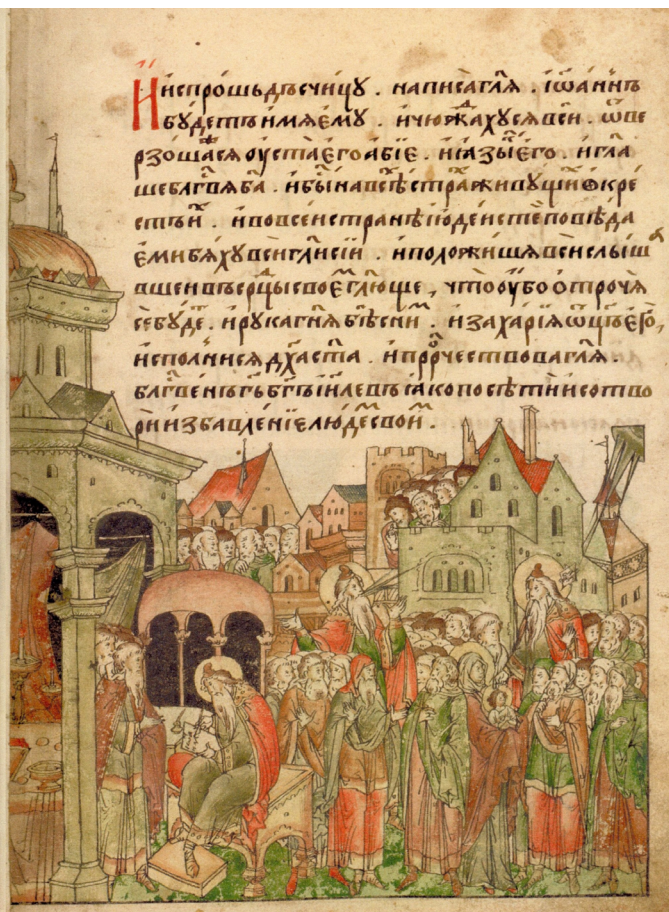 И испрошь дъсчицу . написа гл҃я . іѡаннъ
будетъ имя ему . и чюжахуся вси . ѿве
рзошася оуста его абїе . и языⷦ҇ его . и гла
ше блгⷭ҇вя б҃га . и бысть на всѣⷯ страⷯ живущиⷯ ѡкре
стъ иⷯ . и во всеи странѣ їюдеистѣ повѣда
еми бяху вси гл҃и сїи . и положишя вси слыш
авшеи въ ср҃цы своеⷨ гл҃юще , что оубо отрочя
се буде . и рука гн҃я бѣ с ниⷨ . и захарїя ѿц҃ъ его ,
исполнися дх҃а ст҃а . и прⷪ҇рчествова гл҃я .
блгⷭ҇венъ гь҃ бг҃ъ їи҃левъ яко посѣти и сотво
ри избавленїе людеⷨ своиⷨ .